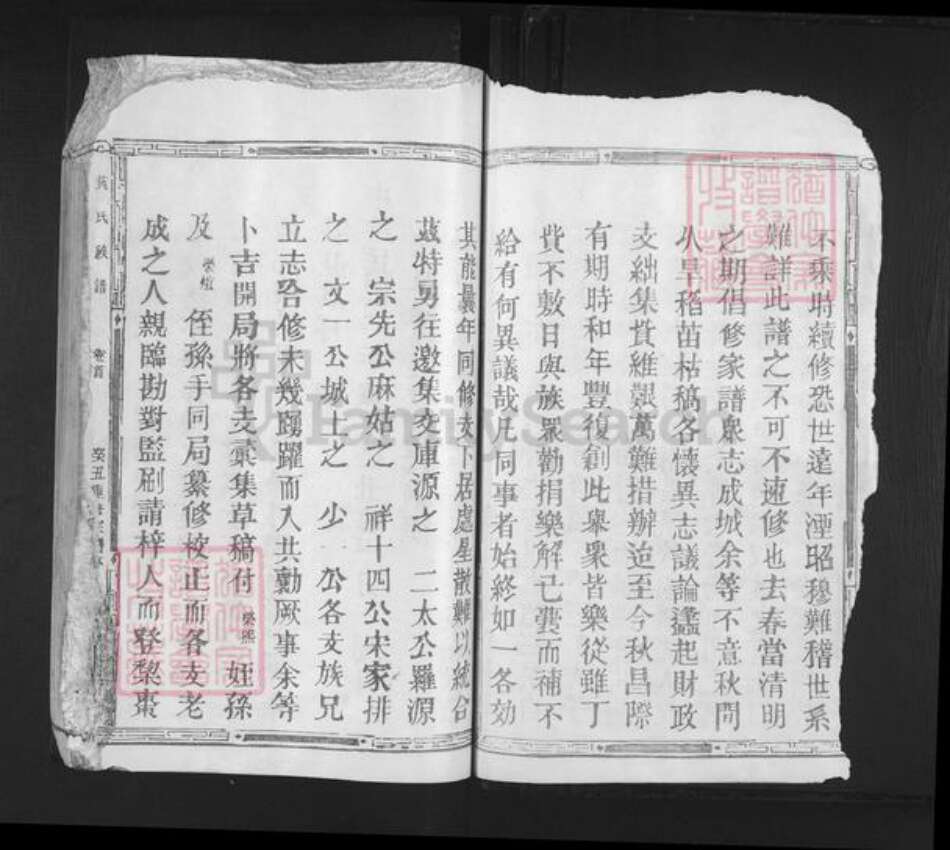 不乘時續修恐世遠年湮昭穆難稽世系
難詳此譜之不可不速修也去春當清明
之期倡修家譜衆志成城余等不意秋間
久旱稻苗枯稿各懷異志議論蠭起財政
支絀集貲維艱萬難措辦迨至今秋昌際
有期時和年豐復創此舉衆皆樂從雖丁
費不敷日與族眾勸捐樂解己囊而補不
給有何異議哉凡同事者始終如一各効
其能曩年同修支卜居處星散難以統合
茲特另往邀集交庫源之 二太公羅源
之 宗先公麻姑之 祥十四公宋家排
之 文一公城上之 少 公各支族兄
立志合修未幾踴躍而入共勷厥事余等
卜吉開局將各支彙集草稿付 榮熙 姪孫
及 榮 侄孫手同局纂修校正而各支老
成之人親臨勘對監刷請梓人而登梨棗
氏族譜 卷首 癸五重
FamilySearch